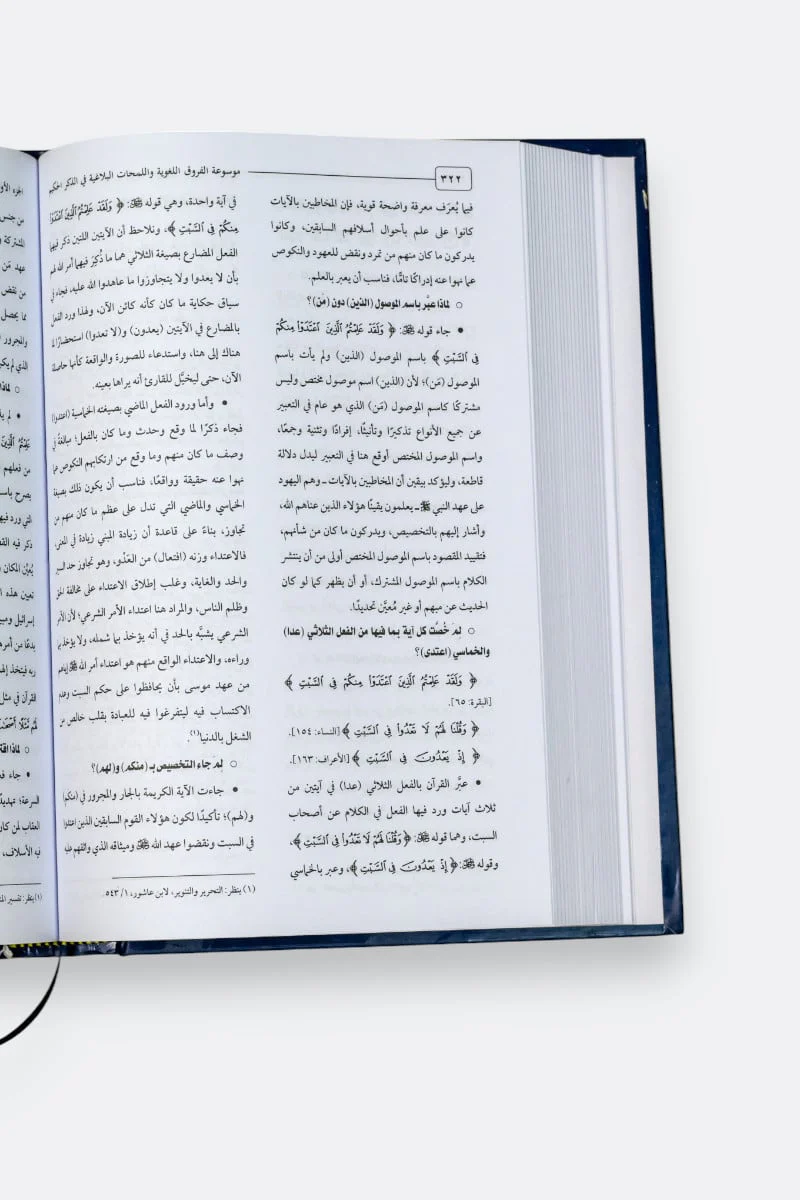 ٣٢٢
موسوعة الفروق اللغوية واللمحات البلاغية في الذكر الحكيم
فيما يُعرَف معرفة واضحة قوية، فإن المخاطبين بالآيات
كانوا على علم بأحوال أسلافهم السابقين، وكانوا
يدركون ما كان منهم من تمرد ونقض للعهود والنكوص
عما نهوا عنه إدراكًا تامًّا، فناسب أن يعبر بالعلم.
○ لماذا عبَّر باسم الموصول (الذين) دون (مَن)؟
• جاء قوله ﷻ: ﴿ وَلَقَدْ عَلِمْتُمُ الَّذِينَ اعْتَدَوْا مِنكُمْ
فِي السَّبْتِ ﴾ باسم الموصول (الذين) ولم يأت باسم
الموصول (مَن)؛ لأن (الذين) اسم موصول مختص وليس
مشتركًا كاسم الموصول (مَن) الذي هو عام في التعبير
عن جميع الأنواع تذكيرًا وتأنيثًا، إفرادًا وتثنية وجمعًا،
واسم الموصول المختص أوقع هنا في التعبير ليدل دلالة
قاطعة، وليؤكد بيقين أن المخاطبين بالآيات ـ وهم اليهود
على عهد النبي ﷺ ـ يعلمون يقينًا هؤلاء الذين عناهم الله،
وأشار إليهم بالتخصيص، ويدركون ما كان من شأنهم،
فتقييد المقصود باسم الموصول المختص أولى من أن ينتشر
الكلام باسم الموصول المشترك، أو أن يظهر كما لو كان
الحديث عن مبهم أو غير مُعيَّن تحديدًا.
○ لِمَ خُصَّت كل آية بما فيها من الفعل الثلاثي (عدا)
والخماسي (اعتدى)؟
﴿ وَلَقَدْ عَلِمْتُمُ الَّذِينَ اعْتَدَوْا مِنكُمْ فِي السَّبْتِ ﴾
[البقرة: ٦٥].
﴿ وَقُلْنَا لَهُمْ لَا تَعْدُوا فِي السَّبْتِ ﴾ [النساء: ١٥٤].
﴿ إِذْ يَعْدُونَ فِي السَّبْتِ ﴾ [الأعراف: ١٦٣].
• عبَّر القرآن بالفعل الثلاثي (عدا) في آيتين من
ثلاث آيات ورد فيها الفعل في الكلام عن أصحاب
السبت، وهما قوله ﷻ: ﴿ وَقُلْنَا لَهُمْ لَا تَعْدُوا فِي السَّبْتِ ﴾،
وقوله ﷻ: ﴿ إِذْ يَعْدُونَ فِي السَّبْتِ ﴾، وعبر بالخماسي
في آية واحدة، وهي قوله ﷻ: ﴿ وَلَقَدْ عَلِمْتُمُ الَّذِينَ اعْتَدَوْا
مِنكُمْ فِي السَّبْتِ ﴾، ونلاحظ أن الآيتين اللتين ذكر فيهما
الفعل المضارع بصيغة الثلاثي هما ما ذُكِرَ فيهما أمر الله لهم
بأن لا يعدوا ولا يتجاوزوا ما عاهدوا الله عليه، فجاء في
سياق حكاية ما كان كأنه كائن الآن، ولهذا ورد الفعل
بالمضارع في الآيتين (يعدون) و(لا تعدوا) استحضارًا لما
هناك إلى هنا، واستدعاء للصورة والواقعة كأنها حاصلة
الآن، حتى ليخيَّل للقارئ أنه يراها بعينه.
• وأما ورود الفعل الماضي بصيغته الخماسية (اعتدوا)
فجاء ذكرًا لما وقع وحدث وما كان بالفعل؛ مبالغةً في
وصف ما كان منهم وما وقع من ارتكابهم النكوص عما
نهوا عنه حقيقة وواقعًا، فناسب أن يكون ذلك بصيغة
الخماسي والماضي التي تدل على عظم ما كان منهم من
تجاوز، بناءً على قاعدة أن زيادة المبني زيادة في المعنى،
فالاعتداء وزنه (افتعال) من العَدْو، وهو تجاوز حد السير
والحد والغاية، وغلب إطلاق الاعتداء على مخالفة الحق
وظلم الناس، والمراد هنا اعتداء الأمر الشرعي؛ لأن الأمر
الشرعي يشبَّه بالحد في أنه يؤخذ بما شمله، ولا يؤخذ بما
وراءه، والاعتداء الواقع منهم هو اعتداء أمر الله ﷻ إياهم
من عهد موسى بأن يحافظوا على حكم السبت وعدم
الاكتساب فيه ليتفرغوا فيه للعبادة بقلب خالص من
الشغل بالدنيا(١).
○ لِمَ جاء التخصيص بـ (منكم) و(لهم)؟
• جاءت الآية الكريمة بالجار والمجرور في (منكم)
و(لهم)؛ تأكيدًا لكون هؤلاء القوم السابقين الذين اعتدوا
في السبت ونقضوا عهد الله ﷻ وميثاقه الذي واثقهم عليه
(١) ينظر: التحرير والتنوير، لابن عاشور، ١/ ٥٤٣.